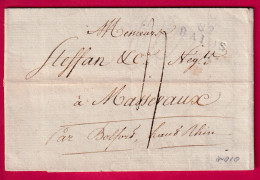 Messieurs
Steffan & C.º Neg.ts
à Massevaux
Par Belfort, haut Rhin